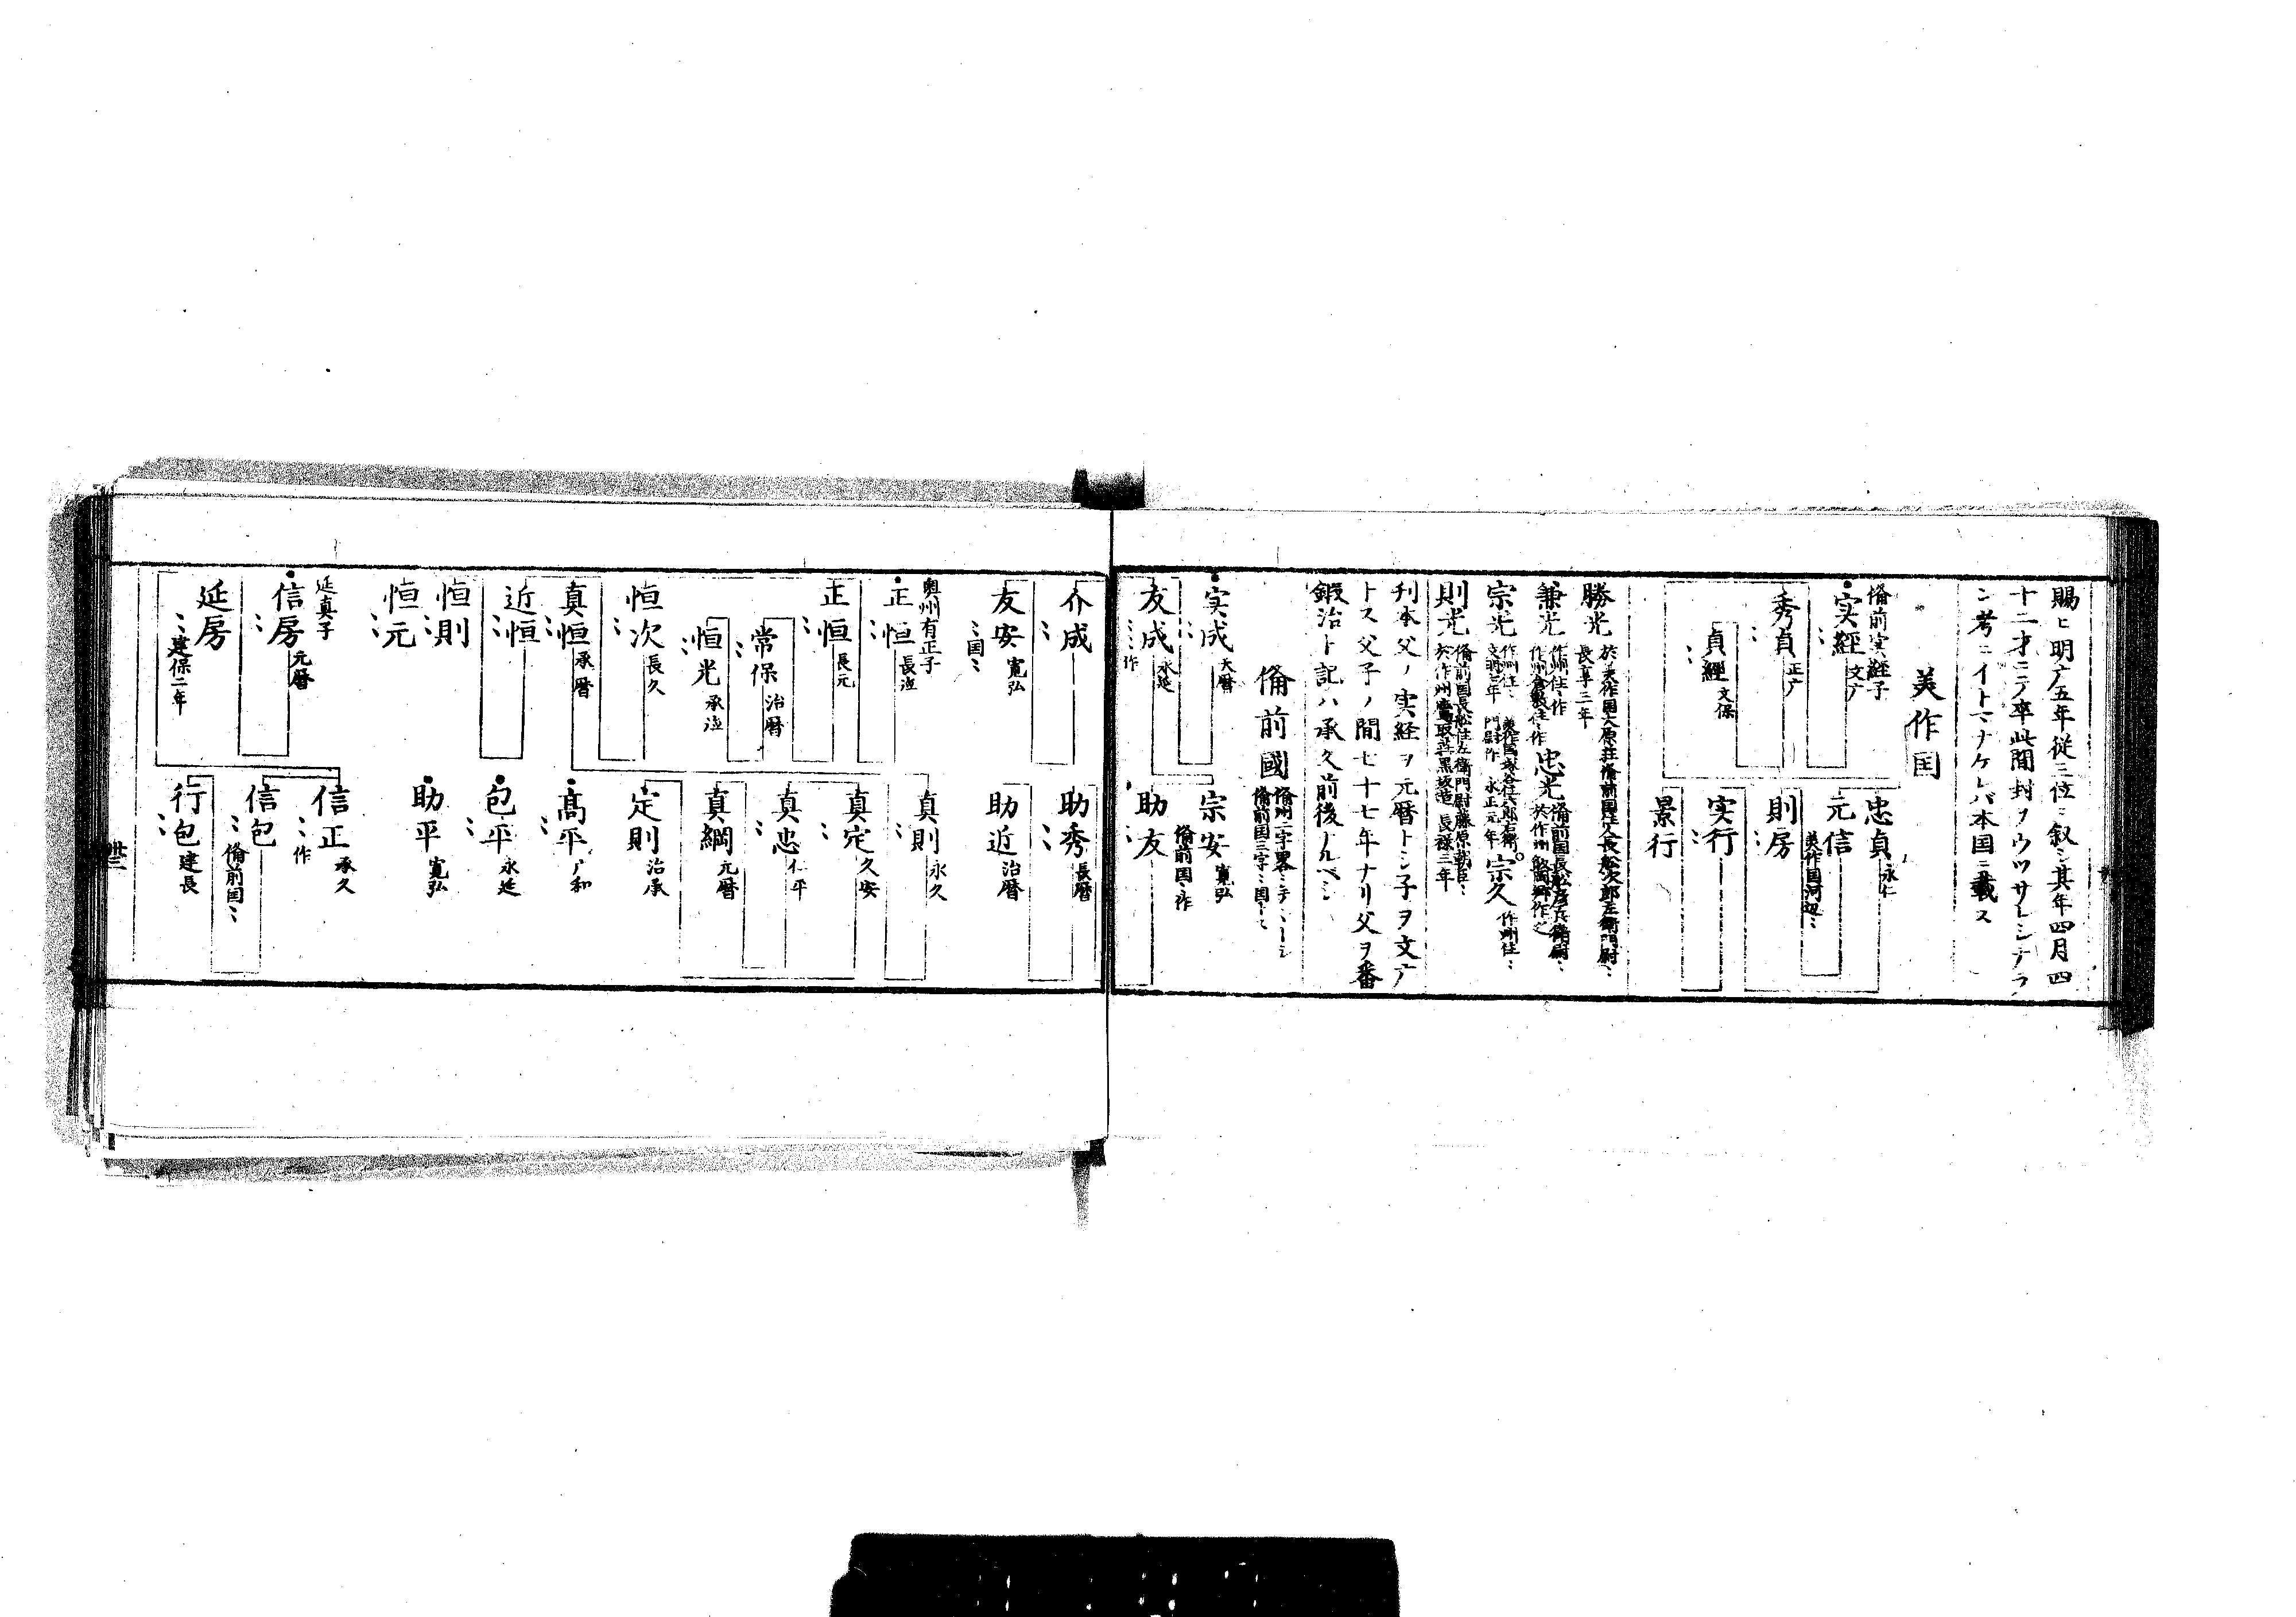 賜ヒ明广五年従三位ニ叙シ其年四月四
十二才ニテ卒此間封ヲウツサレシナラ
ン考ニイトマナケレバ本国ニ載ス
美作国
俻前実経子
実経 文广
秀貞 正广
貞經 文保
忠貞 永仁
元信 美作国河辺
則房
実行
景行
勝光 於美作国大原荘俻前国住人長舩次郎左衛門尉
長享三年
兼光 作州住作
作州倉敷住作
忠光 俻前国長舩彦兵衛尉
於作州
宗光 作州住
文明三年
門尉作 永正元年
宗久 作州住
則光 俻前国長舩住左衛門尉藤原朝臣
於作州鷹取庄黒坂造 長禄三年
刋本父ノ実経ヲ元暦トシ子ヲ文广
トス父子ノ間七十七年ナリ父ヲ番
鍛冶ト記ハ承久前後ナルベシ
俻前國 俻州二字畧
俻前国三字
実成 天暦
友成 永延
作
宗安 寛弘
俻前国作
助友
介成
友安 寛弘
国
助秀 長暦
助近 治暦
奥州有正子
正恒 長治
正恒 長元
常保 治暦
恒光 承治
恒次 長久
真恒 承暦
近恒
恒則
恒元
真則 永久
真定 久安
真忠 仁平
真綱 元暦
定則 治承
高平 广和
包平 永延
助平 寛弘
延真子
信房 元暦
延房 建保二年
信正 承久
作
信包 俻前国
行包 建長